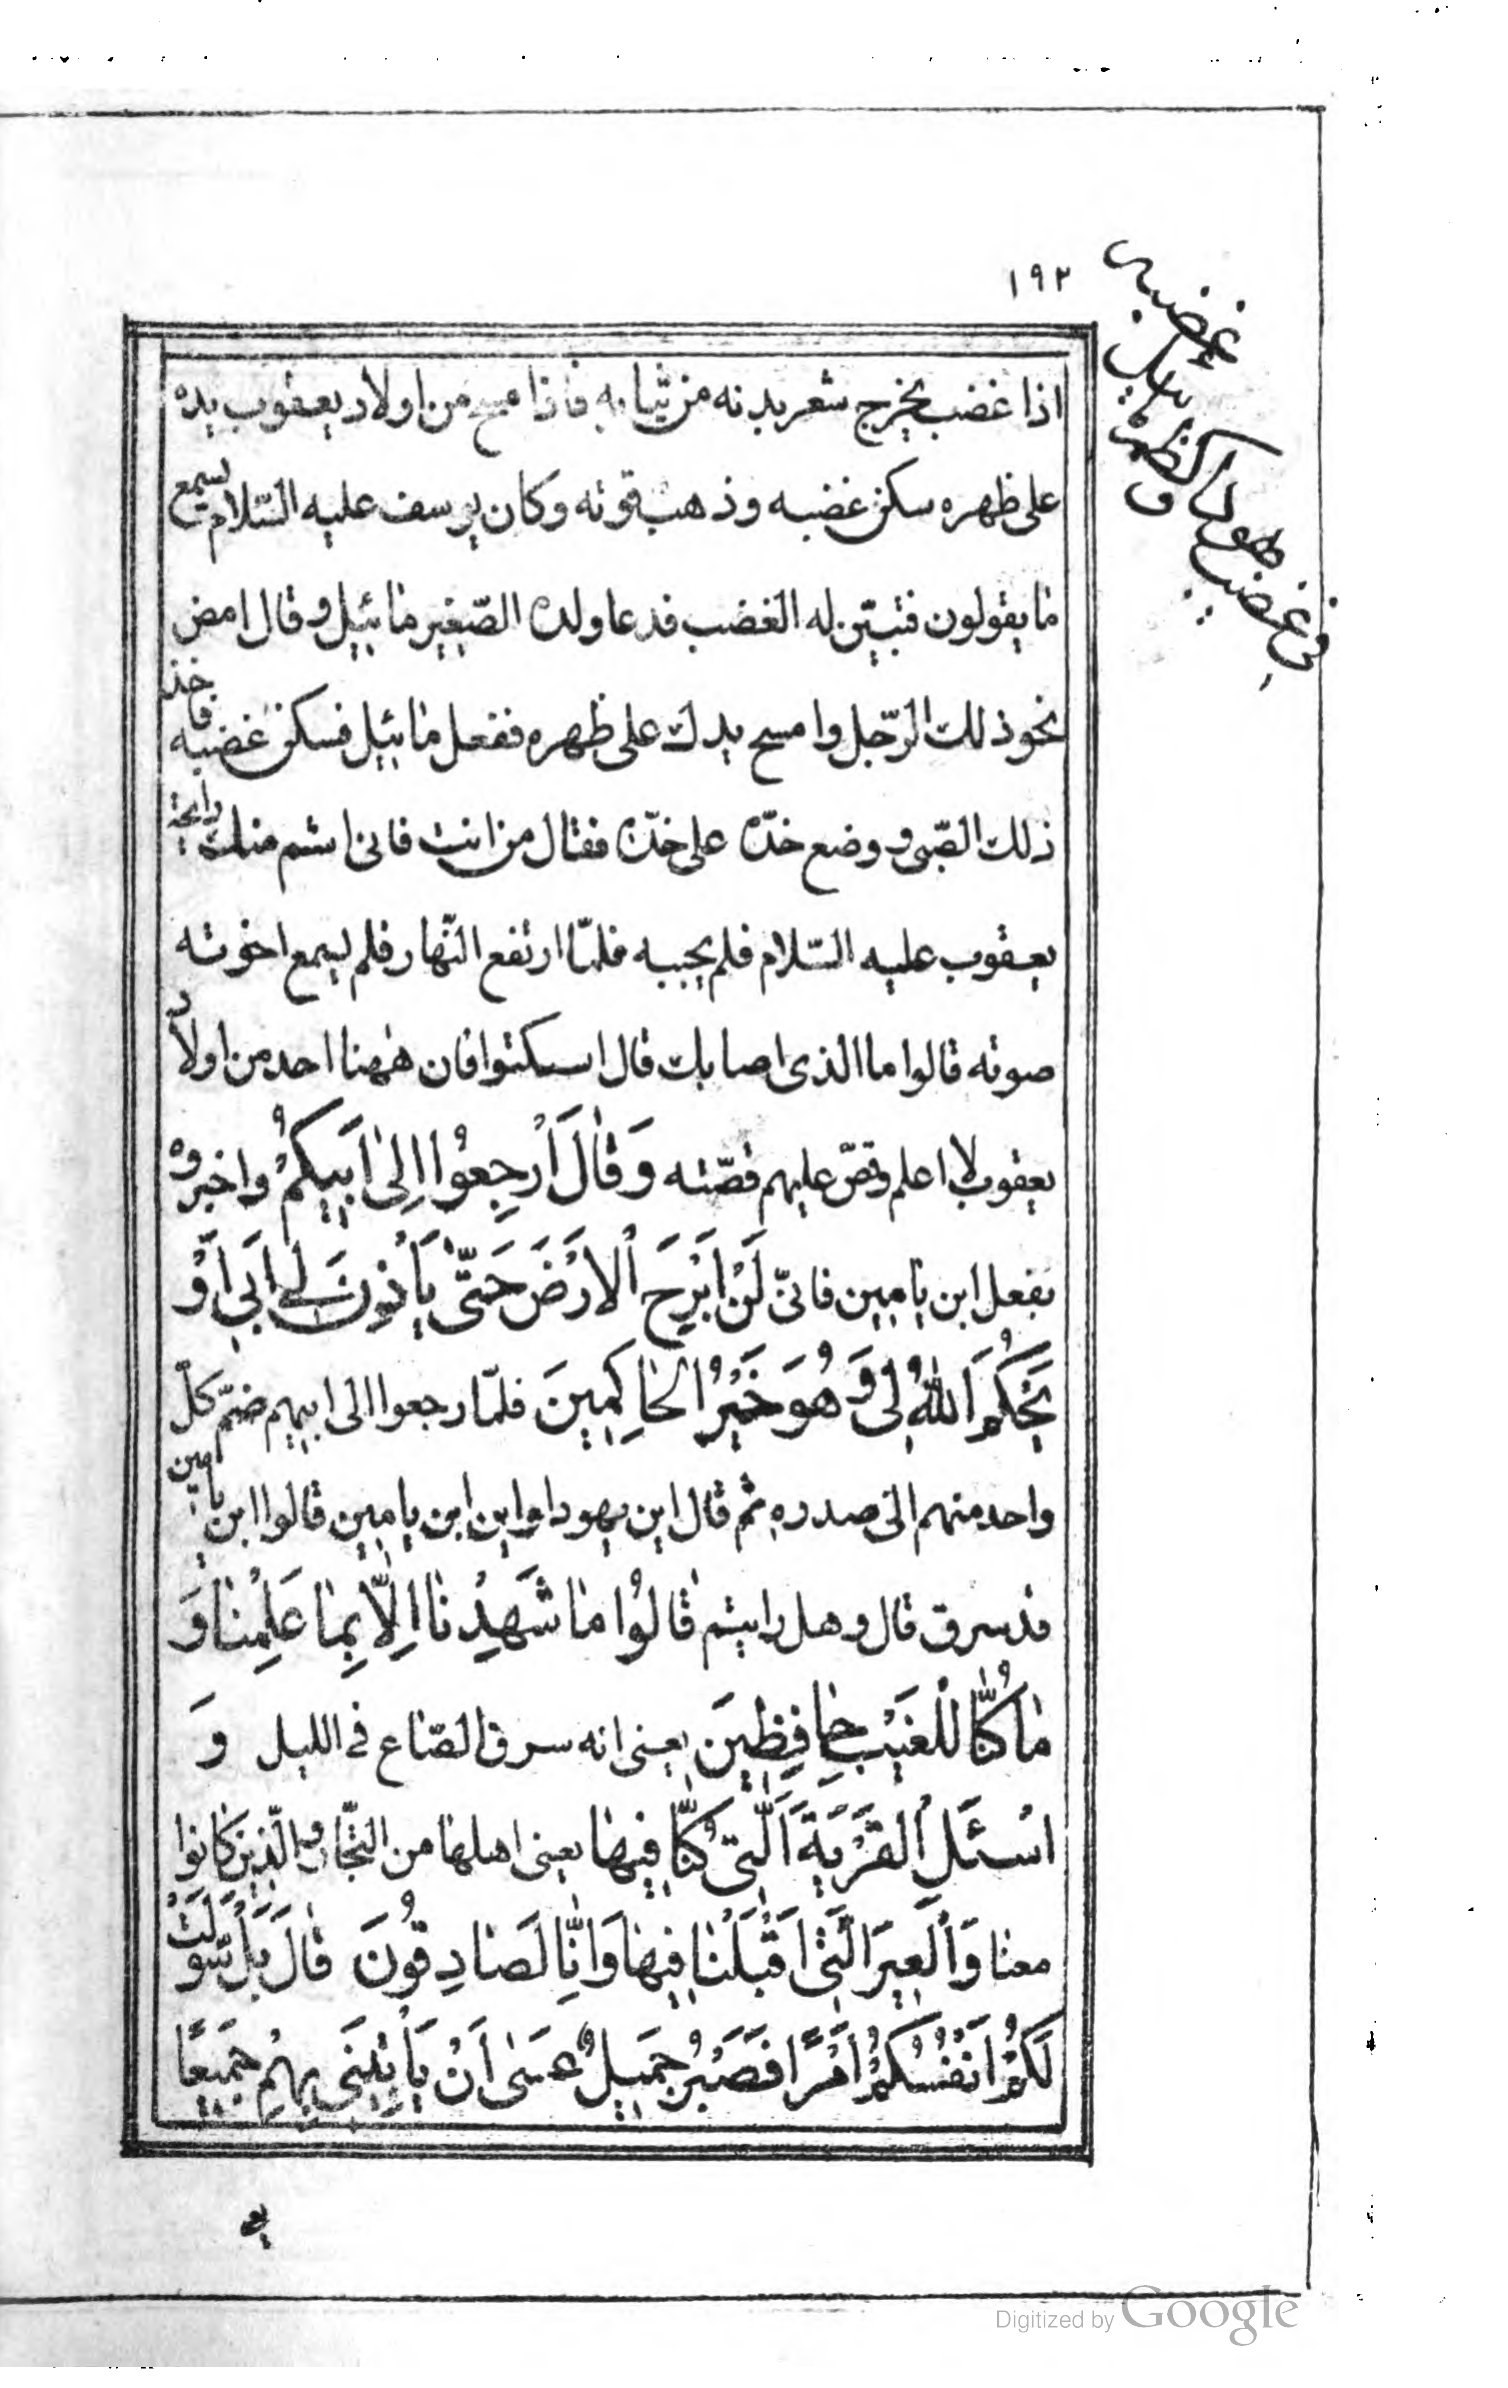 ١٩٢
اذا غضب يخرج شعر بدنه من ثيابه فاذا مسح من اولاد يعقوب يده
على ظهره سكن غضبه وذهب قوته وكان يوسف عليه السّلام يسمع
ما يقولون فتبيّن له الغضب فدعا ولده الصّغير مائيل وقال امض
نحو ذلك الرّجل وامسح يدك على ظهره ففعل مائيل فسكن غضبه فاخذ
ذلك الصّبى ووضع خدّه على خدّه فقال من انت فانى اشم منك رايحة
يعقوب عليه السّلام فلم يجيبه فلمّا ارتفع النّهار فلم يسمع اخوته
صوته قالوا ما الذى اصابك قال اسكتوا فان ههنا احد من اولاد
يعقوب لا اعلم وقصّ عليهم قصّته وَقٰالَ اَرْجِعُوا اِلىٰ اَبَيِكُمْ واخبروه
بفعل ابن يامين فانىّ لَنْ اَبْرَحَ اْلاَرْضَ حَتّىٰ يَأْذِنَ لى اَبى اَوْ
يَحْكُمَ اَللّٰهُ لى وَ هُوَ خَيْرُ الْحٰاكِمِينَ فلمّا رجعوا الى ابيهم ضمّ كلّ
واحد منهم الى صدره ثم قال اين يهودا واين ابن يامين قالوا ابن يامين
قد سرق قال وهل رايتم قٰالُوا مٰا شَهِدْنٰا اِلّاٰ بِمٰا عَلِمْنٰا وَ
مٰا كُنّٰا لِلْغَيْبِ حٰافِظِينَ يعنى انه سرق الصّاع فى الليل وَ
اسْئَلِ الْقَرْيَةَ اَلَّتى كُنّٰا فِيهٰا يعنى اهلها من التجّار والّذين كانوا
معنا وَاْلعِيرَ الَّتى اَقْبَلْنٰا فِيهٰا وَاِنّٰا لَصٰادِقُونَ قٰالَ بَلْ سَوَّلَتْ
لَكُمْ اَنْفُسُكُمْ اَمْرًا فَصَبْرٌ جَمِيلٌ عَسٰى اَنْ يَأْتِيَنى بِهِمْ جَمِيعًا
Digitized by Google